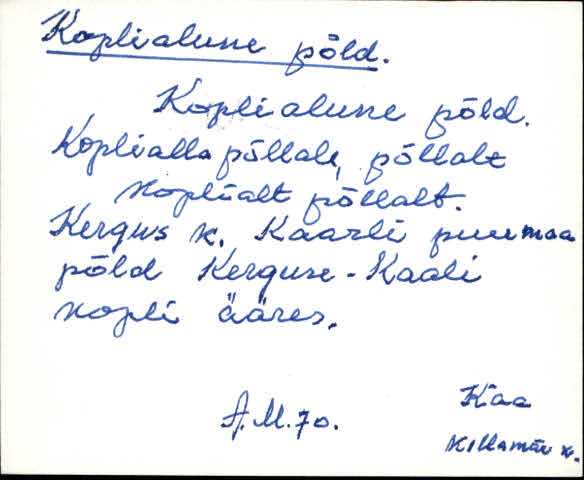 Koplialune põld.
Koplialune põld.
Koplialla põllale, põllalt
koplialt põllalt.
Kergus k. Kaarli puumaa
põld Kerguse-Kaali
kopli ääres.
A.M.70.
Kaa
Killamäe k.